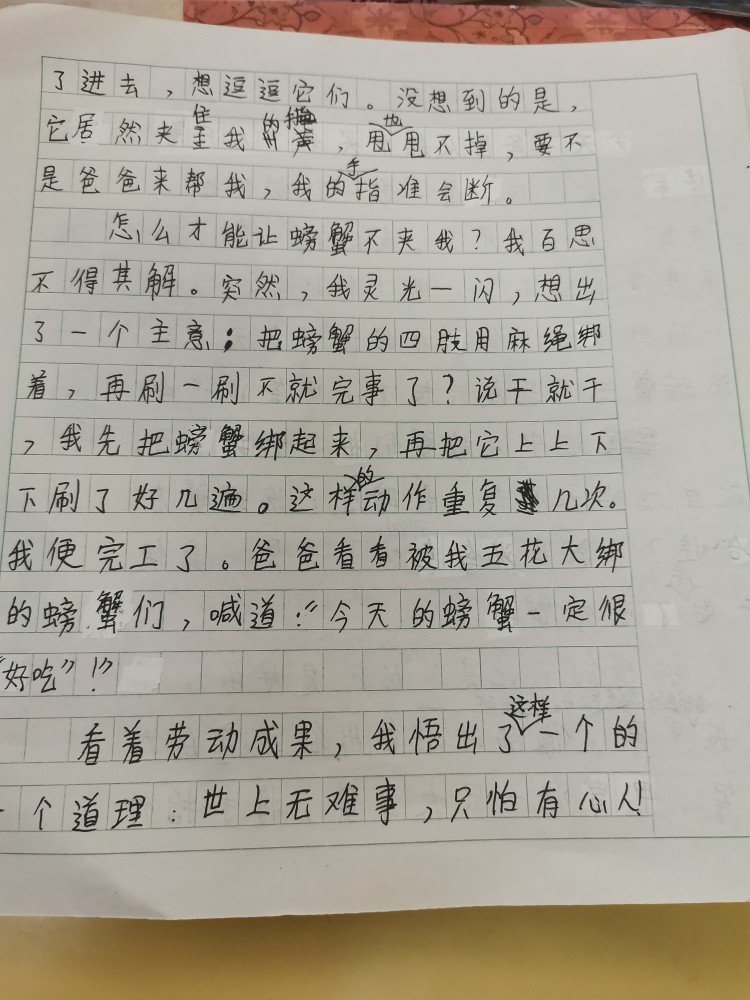 了进去，想逗逗它们。没想到的是，
它居然夹住我的，甩也甩不掉，要不
是爸爸来帮我，我的手指准会断。
怎么才能让螃蟹不夹我？我百思
不得其解。突然，我灵光一闪，想出
了一个主意：把螃蟹的四肢用麻绳绑
着，再刷一刷不就完事了？说干就干
，我先把螃蟹绑起来，再把它上上下
下刷了好几遍。这样的动作重复几次。
我便完工了。爸爸看着被我五花大绑
的螃蟹们，喊道：“今天的螃蟹一定很
“好吃”！”
看着劳动成果，我悟出了这样一个的
一个道理：世上无难事，只怕有心人！